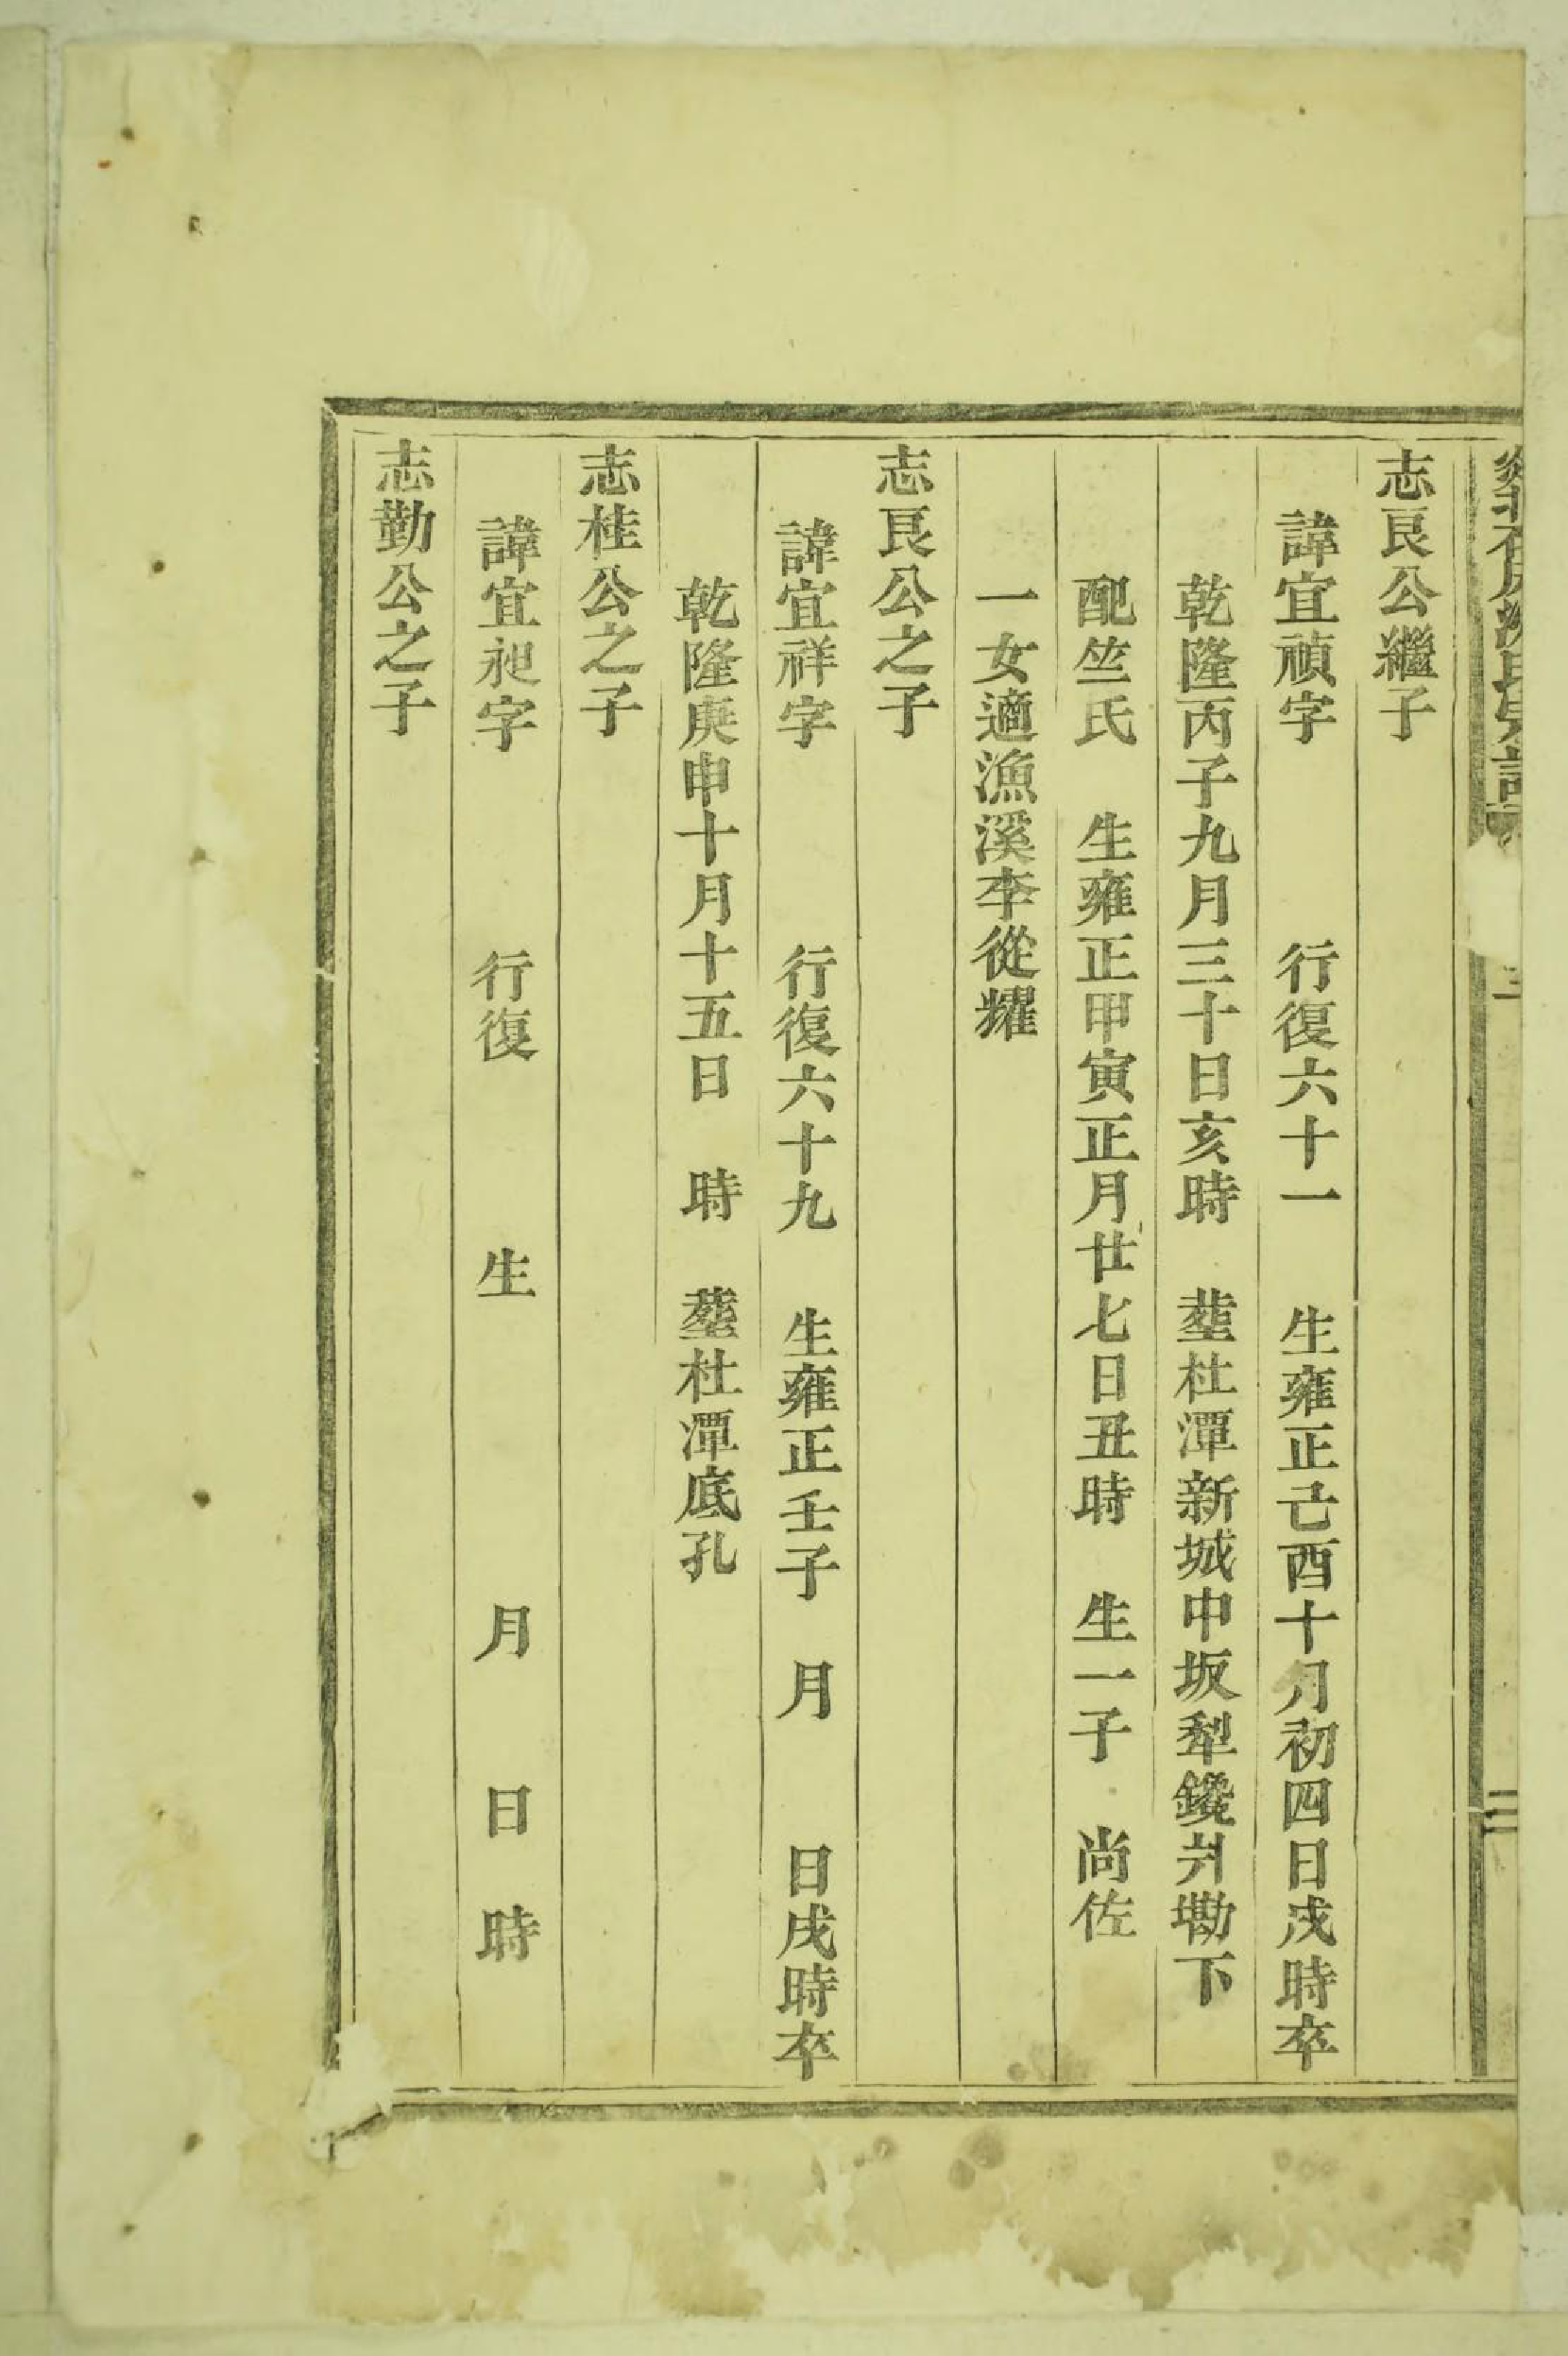 志艮公繼子
諱宜禎字 行復六十一 生雍正己酉十月初四日戌時卒
乾隆丙子九月三十日亥時 塟杜潭新城中坂犁鑱爿墈下
配竺氏 生雍正甲寅正月廿七日丑時 生一子 尚佐
一女適漁溪李從耀
志艮公之子
諱宜祥字 行復六十九 生雍正壬子 月 日戌時卒
乾隆庚申十月十五日 時 塟杜潭底孔
志桂公之子
諱宜昶字 行復 生 月 日 時
志勤公之子